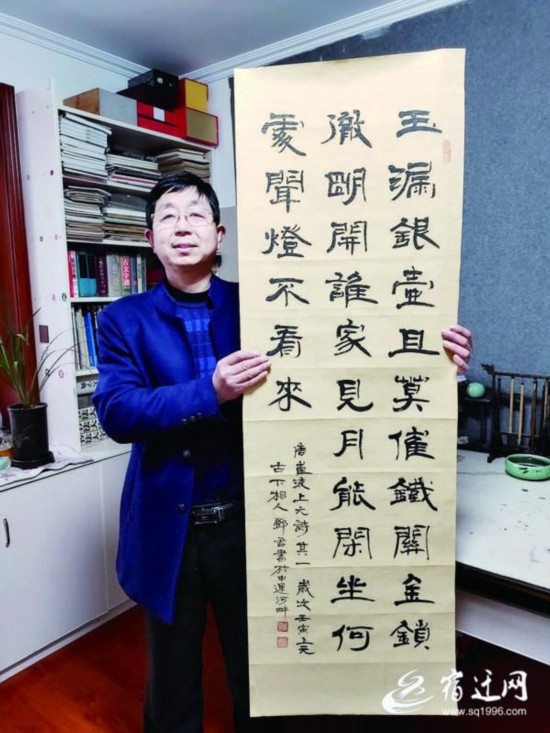 玉漏銀壺且莫催鐵關金鎖
徹明開誰家見月能閑坐何
處聞燈不看來
唐崔液上元詩其一 歲次壬寅上元
古下相人書於中運河畔
宿迁网
www.sq1996.com